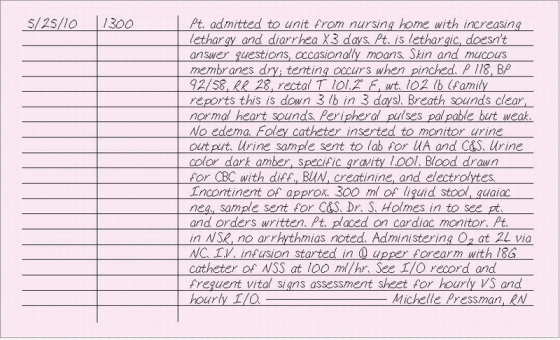 5/25/10 1300 Pt. admitted to unit from nursing home with increasing
lethargy and diarrhea X3 days. Pt. is lethargic, doesn't
answer questions, occasionally moans. Skin and mucous
membranes dry; tenting occurs when pinched. P 118, BP
92/58, RR 28, rectal T 101.2° F, wt. 102 lb (family
reports this is down 3 lb in 3 days). Breath sounds clear,
normal heart sounds. Peripheral pulses palpable but weak.
No edema. Foley catheter inserted to monitor urine
output. Urine sample sent to lab for UA and C&S. Urine
color dark amber, specific gravity 1.001. Blood drawn
for CBC with diff., BUN, creatinine, and electrolytes.
Incontinent of approx. 300 ml of liquid stool, guaiac
neg., sample sent for C&S. Dr. S. Holmes in to see pt.
and orders written. Pt. placed on cardiac monitor. Pt.
in NSR, no arrhythmias noted. Administering O₂ at 2L via
NC. I.V. infusion started in upper forearm with 18G
catheter of NSS at 100 ml/hr. See I/O record and
frequent vital signs assessment sheet for hourly VS and
hourly I/O. Michelle Pressman, RN